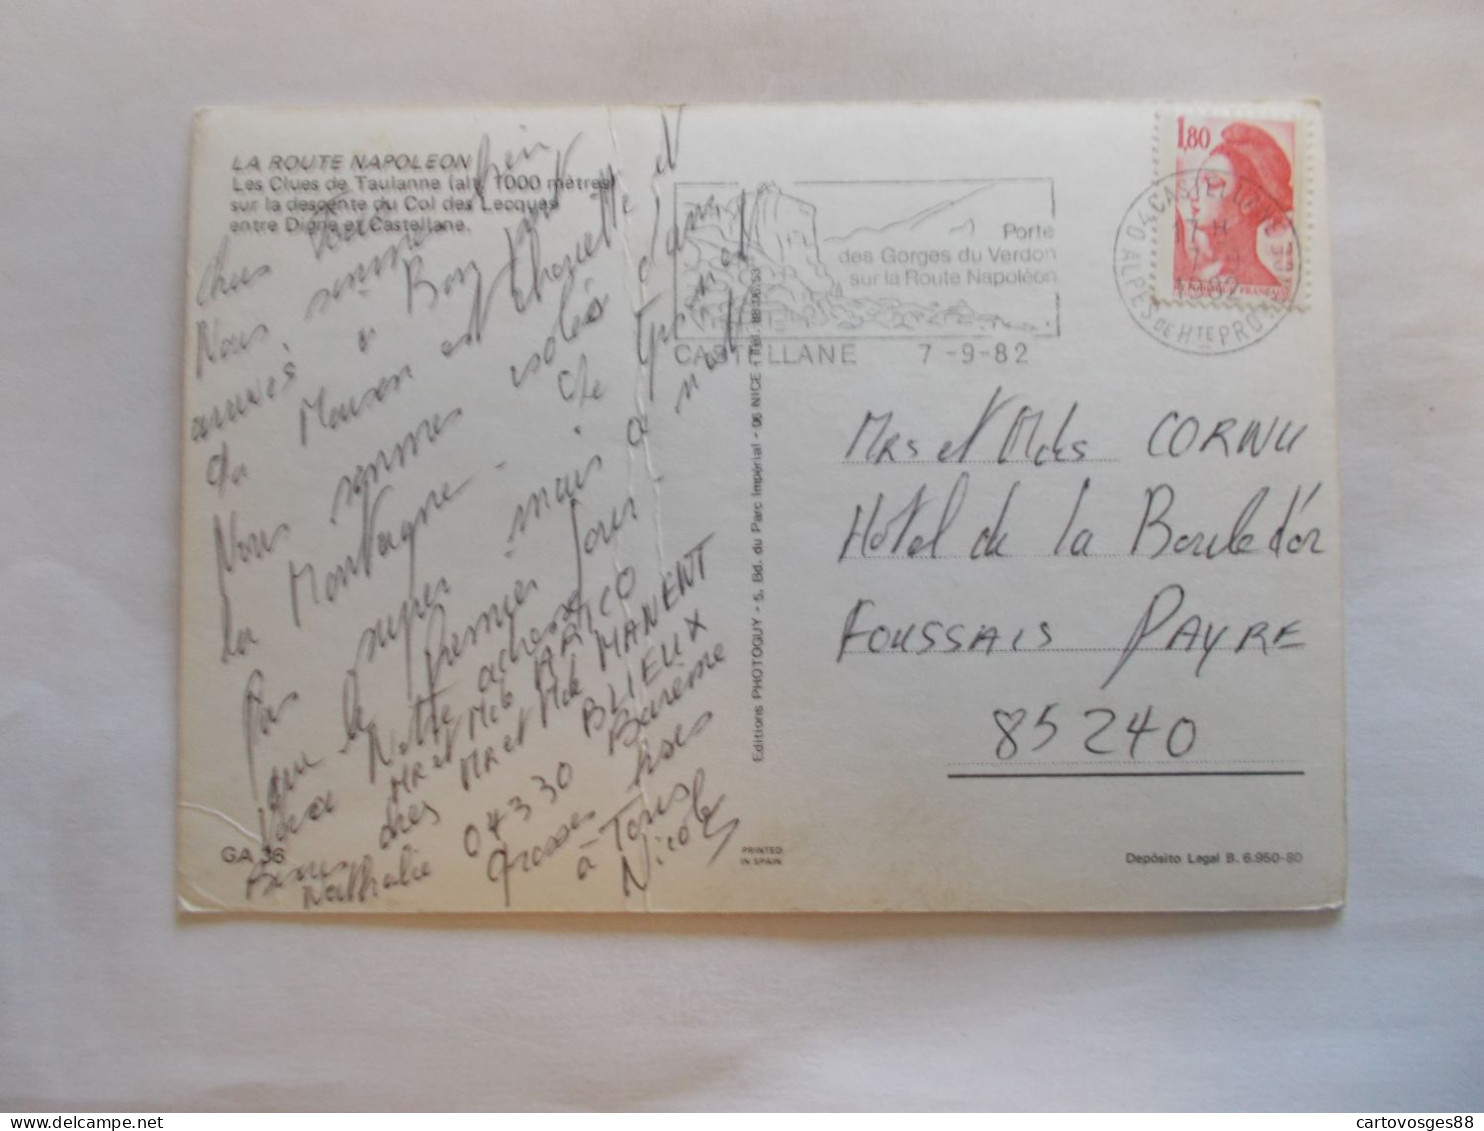 LA ROUTE NAPOLEON
Les Clues de Taulanne (alt. 1000 mètres)
sur la descente du Col des Lecques
entre Digne et Castellane.
Nous sommes bien
arrivés à Bon port
La Maison est chouette et
Nous sommes isolés dans
la Montagne.
super mais
que le premier jour.
Notre adresse
MR et Mde BARICO
chez MR et Mde MANENT
BLIEUX
04330 Barème
Grosses bises
à Tous
Nathalie Nicole
GA 36
PRINTED
IN SPAIN
Editions PHOTOGUY - 5, Bd. du Parc Impérial - 06 NICE - Tel. 88.06.53
Porte
des Gorges du Verdon
sur la Route Napoléon
CASTELLANE 7-9-82
1,80
CASTELLANE
17 H
7-9
1982
04 ALPES DE HTE PROVENCE
MRS et Mdes CORNU
Hôtel de la Boule d'or
FOUSSAIS PAYRE
85240
Depósito Legal B. 6.950-80
cartovosges88